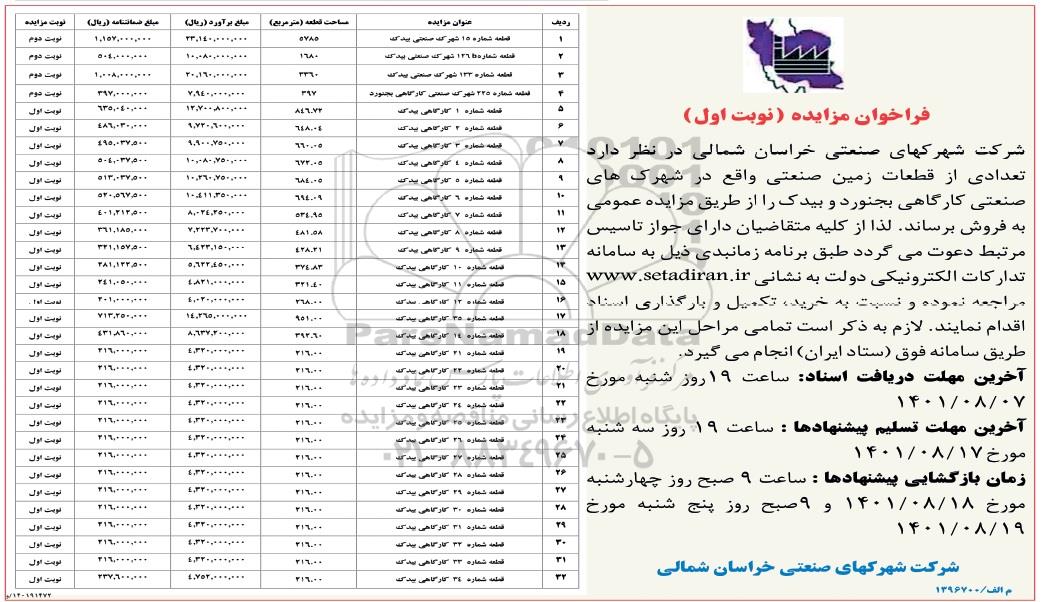 فراخوان مزایده (نوبت اول)
شرکت شهرکهای صنعتی خراسان شمالی در نظر دارد
تعدادی از قطعات زمین صنعتی واقع در شهرک های
صنعتی کارگاهی بجنورد و بیدک را از طریق مزایده عمومی
به فروش برساند. لذا از کلیه متقاضیان دارای جواز تاسیس
مرتبط دعوت می گردد طبق برنامه زمانبندی ذیل به سامانه
تدارکات الکترونیکی دولت به نشانی www.setadiran.ir
مراجعه نموده و نسبت به خرید، تکمیل و بارگذاری اسناد
اقدام نمایند. لازم به ذکر است تمامی مراحل این مزایده از
طریق سامانه فوق (ستاد ایران) انجام می گیرد.
آخرین مهلت دریافت اسناد: ساعت ۱۹ روز شنبه مورخ
۱۴۰۱/۰۸/۰۷
آخرین مهلت تسلیم پیشنهادها : ساعت ۱۹ روز سه شنبه
مورخ ۱۴۰۱/۰۸/۱۷
زمان بازگشایی پیشنهادها : ساعت ۹ صبح روز چهارشنبه
مورخ ۱۴۰۱/۰۸/۱۸ و ۹صبح روز پنج شنبه مورخ
۱۴۰۱/۰۸/۱۹
شرکت شهرکهای صنعتی خراسان شمالی
م الف/۱۳۹۶۷۰۰
ردیف عنوان مزایده مساحت قطعه (مترمربع) مبلغ برآورد (ریال) مبلغ ضمانتنامه (ریال) نوبت مزایده
۱ قطعه شماره ۱۵ شهرک صنعتی بیدک ۵۷۸۵ ۲۳,۱۴۰,۰۰۰,۰۰۰ ۱,۱۵۷,۰۰۰,۰۰۰ نوبت دوم
۲ قطعه شماره ۱۲۶b شهرک صنعتی بیدک ۱۶۸۰ ۱۰,۰۸۰,۰۰۰,۰۰۰ ۵۰۴,۰۰۰,۰۰۰ نوبت دوم
۳ قطعه شماره ۱۳۳ شهرک صنعتی بیدک ۳۳۶۰ ۲۰,۱۶۰,۰۰۰,۰۰۰ ۱,۰۰۸,۰۰۰,۰۰۰ نوبت دوم
۴ قطعه شماره ۲۲۵ شهرک صنعتی کارگاهی بجنورد ۳۹۷ ۷,۹۴۰,۰۰۰,۰۰۰ ۳۹۷,۰۰۰,۰۰۰ نوبت دوم
۵ قطعه شماره ۱ کارگاهی بیدک ۸۴۶.۷۲ ۱۲,۷۰۰,۸۰۰,۰۰۰ ۶۳۵,۰۴۰,۰۰۰ نوبت اول
۶ قطعه شماره ۲ کارگاهی بیدک ۶۴۸.۰۴ ۹,۷۲۰,۶۰۰,۰۰۰ ۴۸۶,۰۳۰,۰۰۰ نوبت اول
۷ قطعه شماره ۳ کارگاهی بیدک ۶۶۰.۰۵ ۹,۹۰۰,۷۵۰,۰۰۰ ۴۹۵,۰۳۷,۵۰۰ نوبت اول
۸ قطعه شماره ۴ کارگاهی بیدک ۶۷۲.۰۵ ۱۰,۰۸۰,۷۵۰,۰۰۰ ۵۰۴,۰۳۷,۵۰۰ نوبت اول
۹ قطعه شماره ۵ کارگاهی بیدک ۶۸۴.۰۵ ۱۰,۲۶۰,۷۵۰,۰۰۰ ۵۱۳,۰۳۷,۵۰۰ نوبت اول
۱۰ قطعه شماره ۶ کارگاهی بیدک ۶۹۴.۰۹ ۱۰,۴۱۱,۳۵۰,۰۰۰ ۵۲۰,۵۶۷,۵۰۰ نوبت اول
۱۱ قطعه شماره ۷ کارگاهی بیدک ۵۳۴.۹۵ ۸,۰۲۴,۲۵۰,۰۰۰ ۴۰۱,۲۱۲,۵۰۰ نوبت اول
۱۲ قطعه شماره ۸ کارگاهی بیدک ۴۸۱.۵۸ ۷,۲۲۳,۷۰۰,۰۰۰ ۳۶۱,۱۸۵,۰۰۰ نوبت اول
۱۳ قطعه شماره ۹ کارگاهی بیدک ۴۲۸.۲۱ ۶,۴۲۳,۱۵۰,۰۰۰ ۳۲۱,۱۵۷,۵۰۰ نوبت اول
۱۴ قطعه شماره ۱۰ کارگاهی بیدک ۳۷۴.۸۳ ۵,۶۲۲,۴۵۰,۰۰۰ ۲۸۱,۱۲۲,۵۰۰ نوبت اول
۱۵ قطعه شماره ۱۱ کارگاهی بیدک ۳۲۱.۴۰ ۴,۸۲۱,۰۰۰,۰۰۰ ۲۴۱,۰۵۰,۰۰۰ نوبت اول
۱۶ قطعه شماره ۱۲ کارگاهی بیدک ۲۶۸.۰۰ ۴,۰۲۰,۰۰۰,۰۰۰ ۲۰۱,۰۰۰,۰۰۰ نوبت اول
۱۷ قطعه شماره ۳۵ کارگاهی بیدک ۹۵۱.۰۰ ۱۴,۲۶۵,۰۰۰,۰۰۰ ۷۱۳,۲۵۰,۰۰۰ نوبت اول
۱۸ قطعه شماره ۱۴ کارگاهی بیدک ۳۹۲.۶۰ ۸,۶۳۷,۲۰۰,۰۰۰ ۴۳۱,۸۶۰,۰۰۰ نوبت اول
۱۹ قطعه شماره ۲۱ کارگاهی بیدک ۲۱۶.۰۰ ۴,۳۲۰,۰۰۰,۰۰۰ ۲۱۶,۰۰۰,۰۰۰ نوبت اول
۲۰ قطعه شماره ۲۲ کارگاهی بیدک ۲۱۶.۰۰ ۴,۳۲۰,۰۰۰,۰۰۰ ۲۱۶,۰۰۰,۰۰۰ نوبت اول
۲۱ قطعه شماره ۲۳ کارگاهی بیدک ۲۱۶.۰۰ ۴,۳۲۰,۰۰۰,۰۰۰ ۲۱۶,۰۰۰,۰۰۰ نوبت اول
۲۲ قطعه شماره ۲۴ کارگاهی بیدک ۲۱۶.۰۰ ۴,۳۲۰,۰۰۰,۰۰۰ ۲۱۶,۰۰۰,۰۰۰ نوبت اول
۲۳ قطعه شماره ۲۵ کارگاهی بیدک ۲۱۶.۰۰ ۴,۳۲۰,۰۰۰,۰۰۰ ۲۱۶,۰۰۰,۰۰۰ نوبت اول
۲۴ قطعه شماره ۲۶ کارگاهی بیدک ۲۱۶.۰۰ ۴,۳۲۰,۰۰۰,۰۰۰ ۲۱۶,۰۰۰,۰۰۰ نوبت اول
۲۵ قطعه شماره ۲۷ کارگاهی بیدک ۲۱۶.۰۰ ۴,۳۲۰,۰۰۰,۰۰۰ ۲۱۶,۰۰۰,۰۰۰ نوبت اول
۲۶ قطعه شماره ۲۸ کارگاهی بیدک ۲۱۶.۰۰ ۴,۳۲۰,۰۰۰,۰۰۰ ۲۱۶,۰۰۰,۰۰۰ نوبت اول
۲۷ قطعه شماره ۲۹ کارگاهی بیدک ۲۱۶.۰۰ ۴,۳۲۰,۰۰۰,۰۰۰ ۲۱۶,۰۰۰,۰۰۰ نوبت اول
۲۸ قطعه شماره ۳۰ کارگاهی بیدک ۲۱۶.۰۰ ۴,۳۲۰,۰۰۰,۰۰۰ ۲۱۶,۰۰۰,۰۰۰ نوبت اول
۲۹ قطعه شماره ۳۱ کارگاهی بیدک ۲۱۶.۰۰ ۴,۳۲۰,۰۰۰,۰۰۰ ۲۱۶,۰۰۰,۰۰۰ نوبت اول
۳۰ قطعه شماره ۳۲ کارگاهی بیدک ۲۱۶.۰۰ ۴,۳۲۰,۰۰۰,۰۰۰ ۲۱۶,۰۰۰,۰۰۰ نوبت اول
۳۱ قطعه شماره ۳۳ کارگاهی بیدک ۲۱۶.۰۰ ۴,۳۲۰,۰۰۰,۰۰۰ ۲۱۶,۰۰۰,۰۰۰ نوبت اول
۳۲ قطعه شماره ۳۴ کارگاهی بیدک ۲۱۶.۰۰ ۴,۷۵۲,۰۰۰,۰۰۰ ۲۳۷,۶۰۰,۰۰۰ نوبت اول
۱۴۰۱۹۱۴۷۲/و
ParsNamadData
پایگاه اطلاع رسانی مناقصه و مزایده
۰۲۱-۸۸۳۴۹۶۷۰-۵